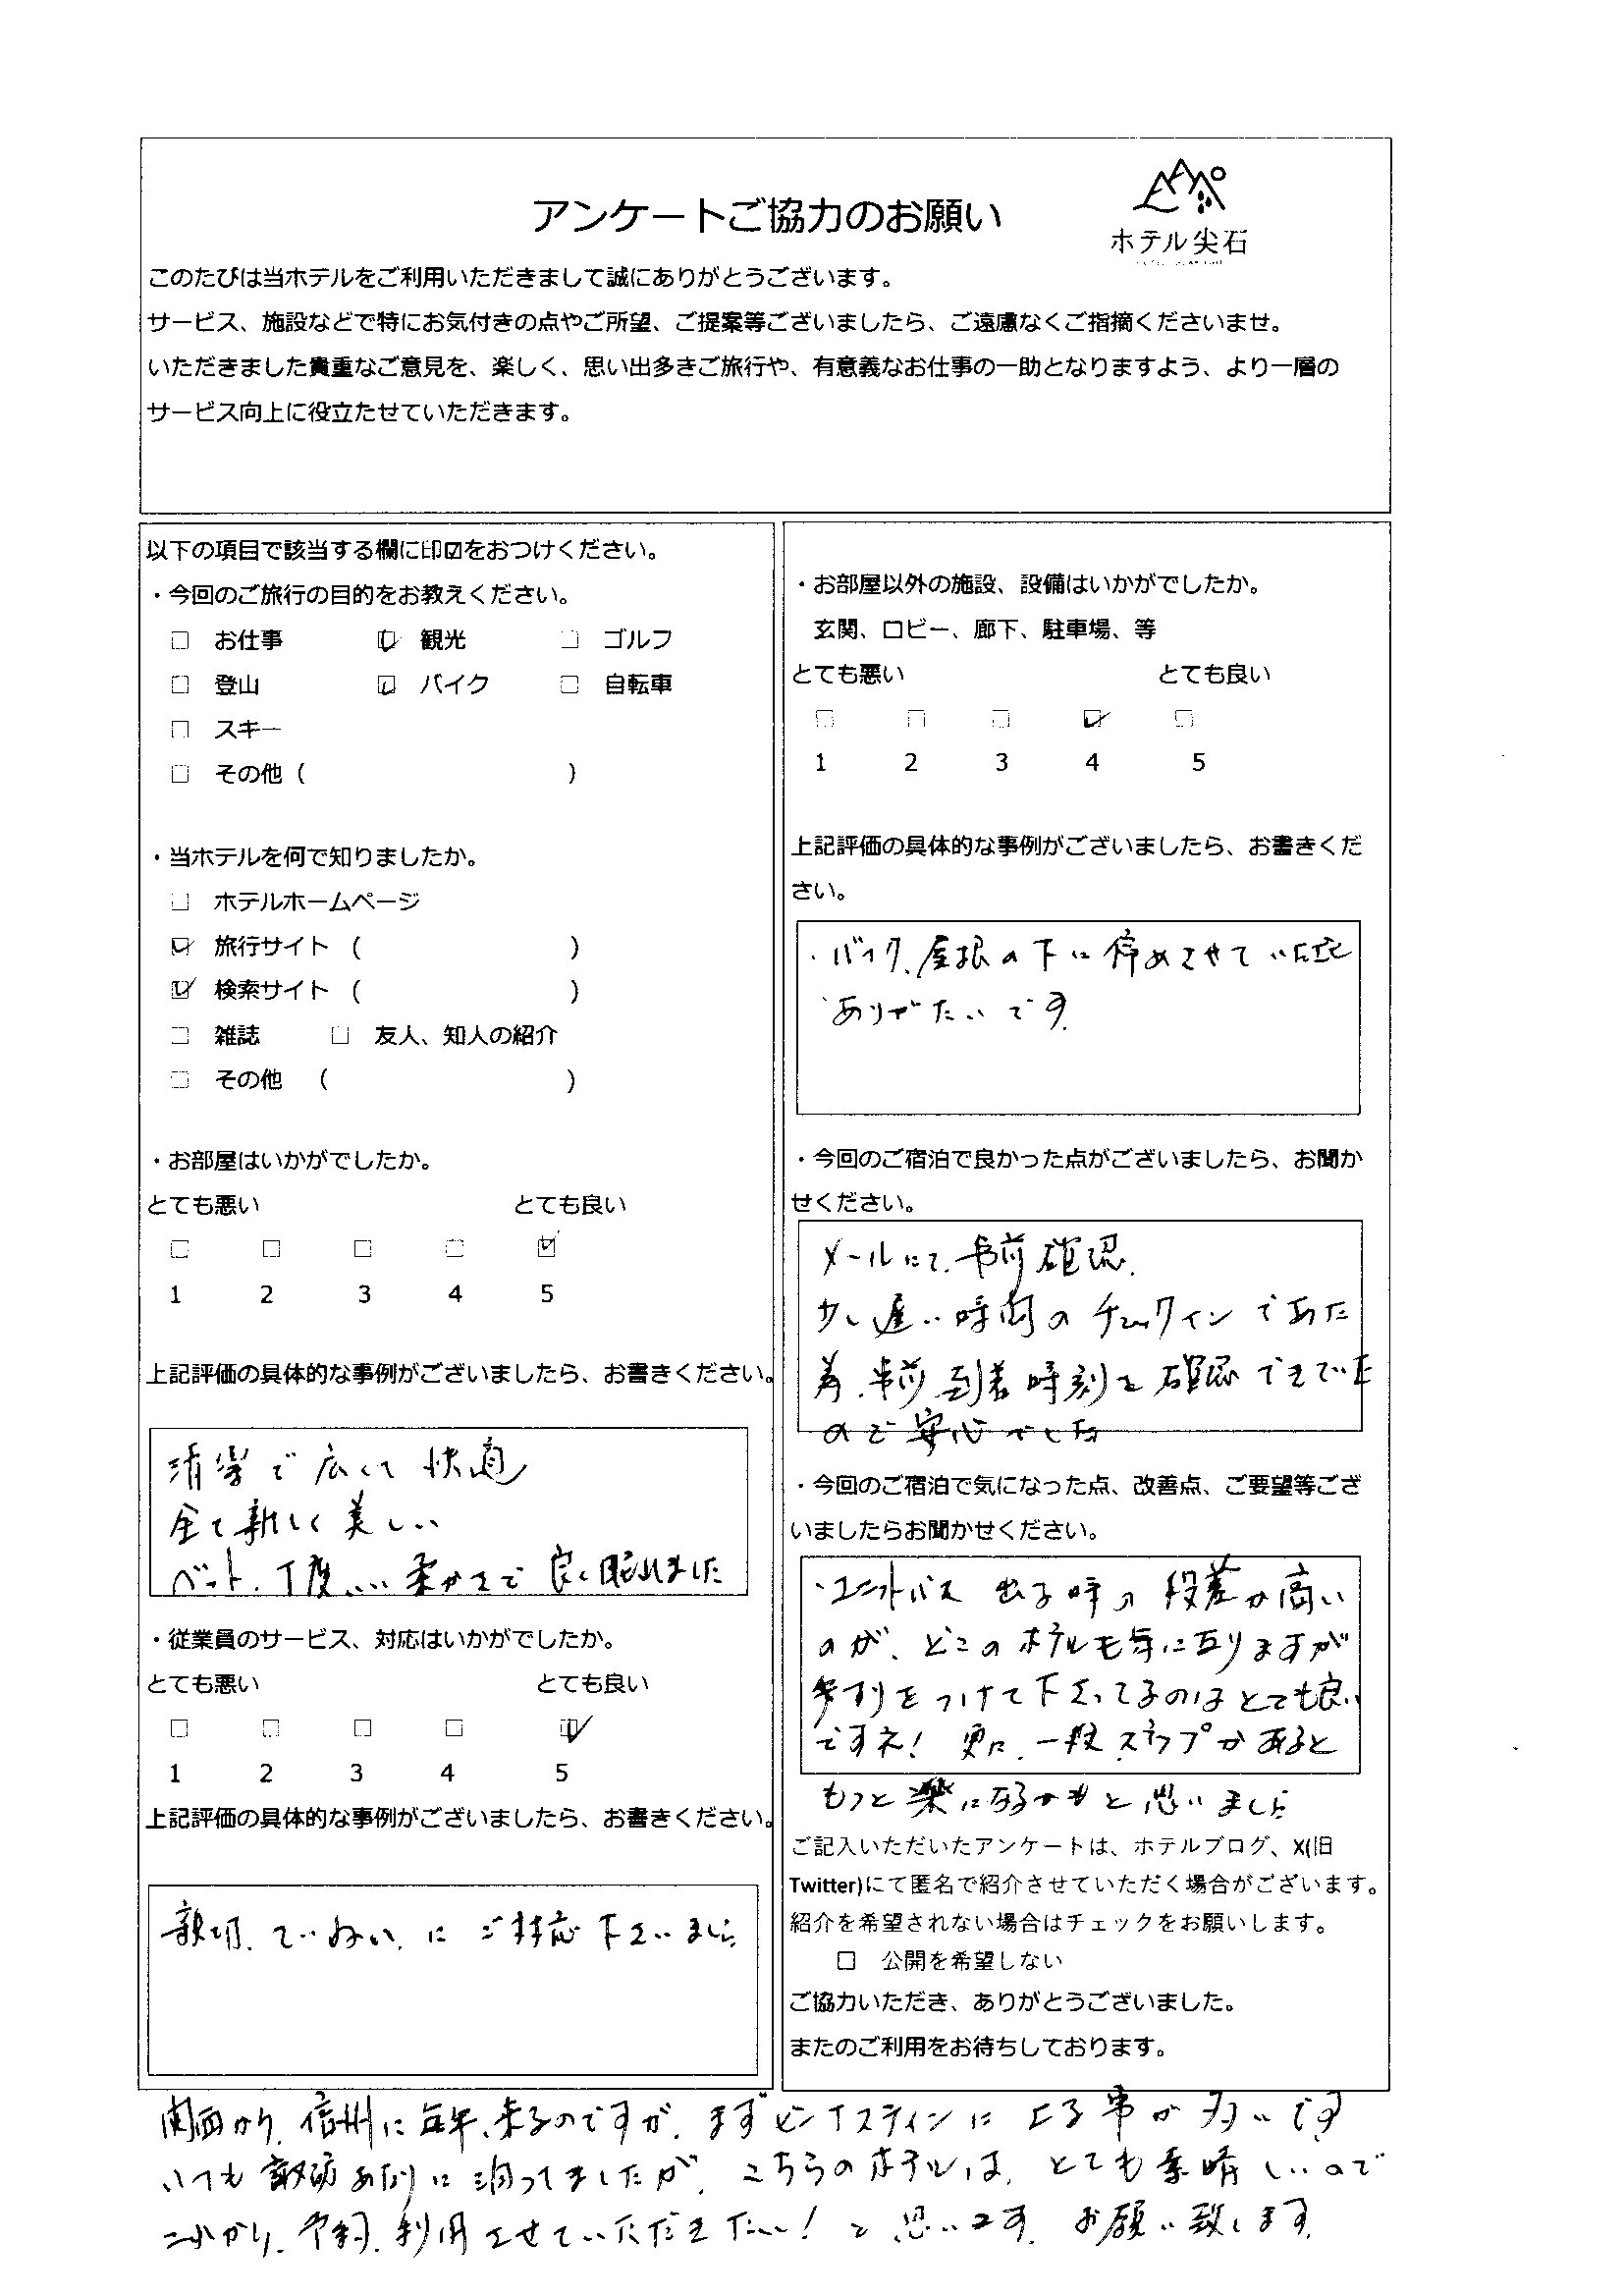 アンケートご協力のお願い
ホテル尖石
このたびは当ホテルをご利用いただきまして誠にありがとうございます。
サービス、施設などで特にお気付きの点やご所望、ご提案等ございましたら、ご遠慮なくご指摘くださいませ。
いただきました貴重なご意見を、楽しく、思い出多きご旅行や、有意義なお仕事の一助となりますよう、より一層の
サービス向上に役立たせていただきます。
以下の項目で該当する欄に印☑をおつけください。
・今回のご旅行の目的をお教えください。
□ お仕事 ☑ 観光 □ ゴルフ
□ 登山 ☑ バイク □ 自転車
□ スキー
□ その他 ( )
・当ホテルを何で知りましたか。
□ ホテルホームページ
☑ 旅行サイト ( )
☑ 検索サイト ( )
□ 雑誌 □ 友人、知人の紹介
□ その他 ( )
・お部屋はいかがでしたか。
とても悪い とても良い
□ □ □ □ ☑
1 2 3 4 5
上記評価の具体的な事例がございましたら、お書きください。
清潔で広くて快適
全て新しく美しい
ベット、丁度いい柔かさで良く眠れました
・従業員のサービス、対応はいかがでしたか。
とても悪い とても良い
□ □ □ □ ☑
1 2 3 4 5
上記評価の具体的な事例がございましたら、お書きください。
親切、ていねい、にご対応下さいました
・お部屋以外の施設、設備はいかがでしたか。
玄関、ロビー、廊下、駐車場、等
とても悪い とても良い
□ □ □ ☑ □
1 2 3 4 5
上記評価の具体的な事例がございましたら、お書きくだ
さい。
・バイク、屋根の下に停めさせていただき
ありがたいです。
・今回のご宿泊で良かった点がございましたら、お聞か
せください。
メールにて、事前確認、
少し遅い時間のチェックインであた
為、事前到着時刻を確認できていた
ので安心でした
・今回のご宿泊で気になった点、改善点、ご要望等ござ
いましたらお聞かせください。
・ユニットバス 出る時の段差が高い
のが、どこのホテルも気になりますが
手すりをつけて下さってるのはとても良い
ですネ! 更に、一段ステップがあると
もっと楽になるかもと思いました
ご記入いただいたアンケートは、ホテルブログ、X(旧
Twitter)にて匿名で紹介させていただく場合がございます。
紹介を希望されない場合はチェックをお願いします。
□ 公開を希望しない
ご協力いただき、ありがとうございました。
またのご利用をお待ちしております。
関西から、信州に毎年、来るのですが、まずビーナスラインに上る事が多いです
いつも諏訪あたりに泊ってましたが、こちらのホテルは、とても素晴しいので
これから、予約、利用させていただきたい! と思います。お願い致します。